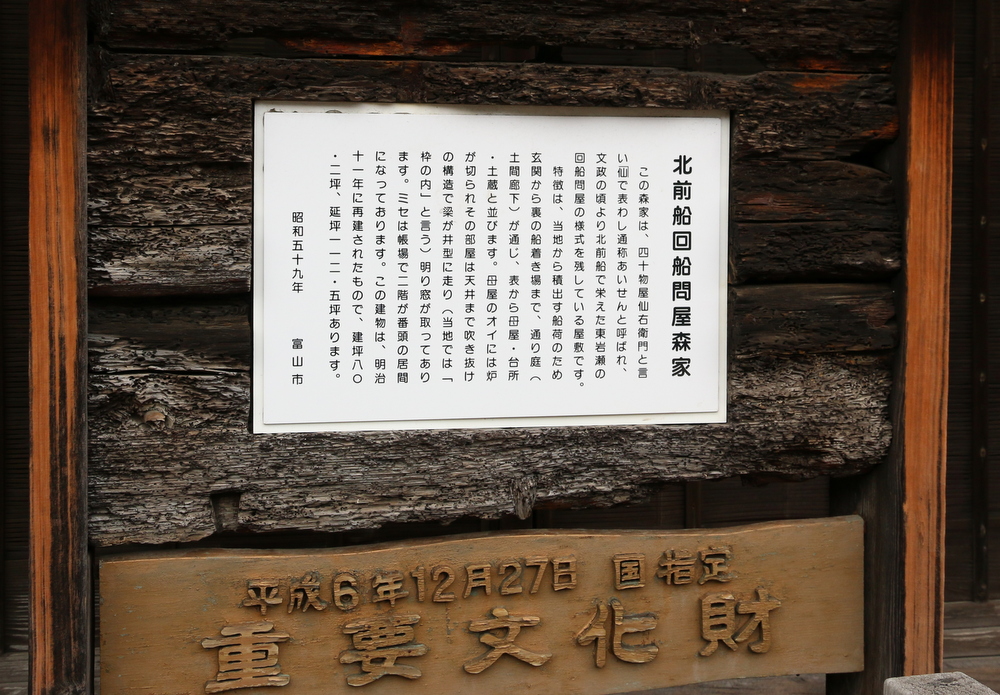 北前船回船問屋森家
この森家は、四十物屋仙右衛門と言
い仙で表わし通称あいせんと呼ばれ、
文政の頃より北前船で栄えた東岩瀬の
回船問屋の様式を残している屋敷です。
特徴は、当地から積出す船荷のため
玄関から裏の船着き場まで、通り庭（
土間廊下）が通じ、表から母屋・台所
・土蔵と並びます。母屋のオイには炉
が切られその部屋は天井まで吹き抜け
の構造で梁が井型に走り（当地では「
枠の内」と言う）明り窓が取ってあり
ます。ミセは帳場で二階が番頭の居間
になっております。この建物は、明治
十一年に再建されたもので、建坪八〇
・二坪、延坪一一二・五坪あります。
昭和五十九年 富山市
平成6年12月27日 国指定
重要文化財